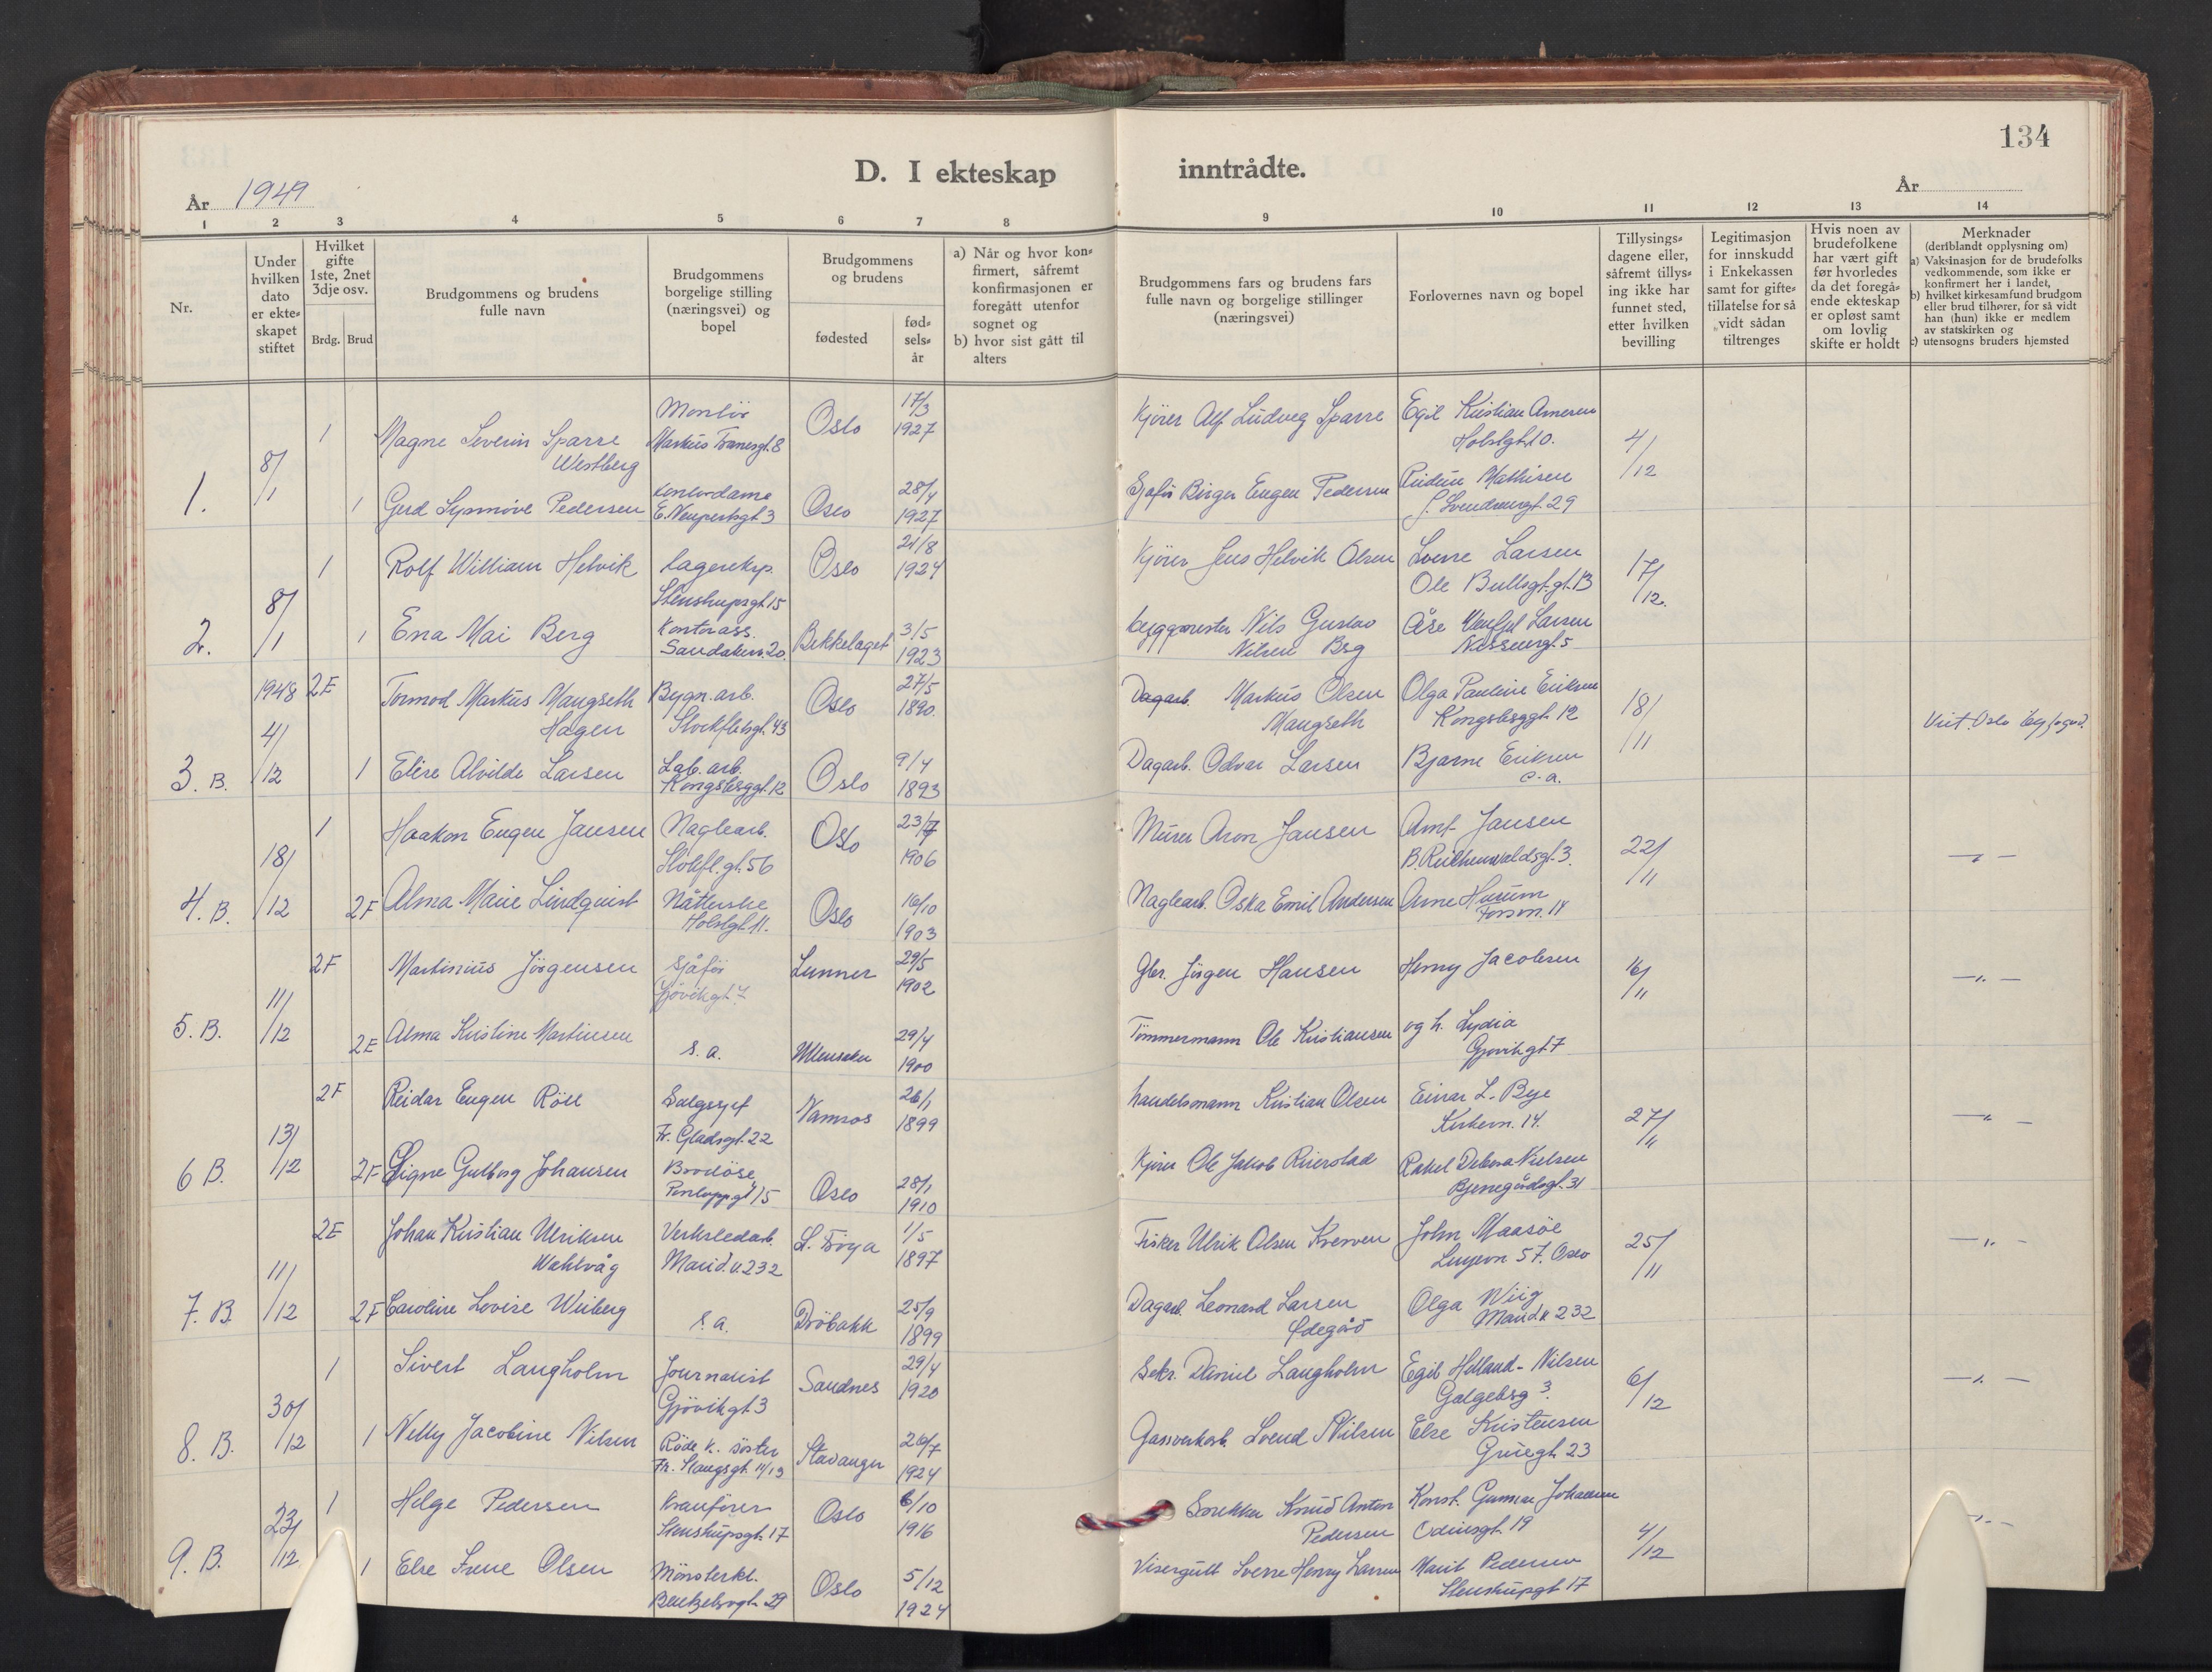 134
D. I ekteskap inntrådte.
År 1949
År
1 2 3 4 5 6 7 8 9 10 11 12 13 14
Nr.
Under
hvilken
dato
er ekte-
skapet
stiftet
Hvilket
gifte
1ste, 2net
3dje osv.
Brdg. Brud
Brudgommens og brudens
fulle navn
Brudgommens
borgelige stilling
(næringsvei) og
bopel
Brudgommens
og brudens
fødested
fød-
sels-
år
a) Når og hvor kon-
firmert, såfremt
konfirmasjonen er
foregått utenfor
sognet og
b) hvor sist gått til
alters
Brudgommens fars og brudens fars
fulle navn og borgelige stillinger
(næringsvei)
Forlovernes navn og bopel
Tillysings-
dagene eller,
såfremt tillys-
ing ikke har
funnet sted,
etter hvilken
bevilling
Legitimasjon
for innskudd
i Enkekassen
samt for gifte-
tillatelse for så
vidt sådan
tiltrenges
Hvis noen av
brudefolkene
har vært gift
før hvorledes
da det foregå-
ende ekteskap
er opløst samt
om lovlig
skifte er holdt
Merknader
(deriblandt opplysning om)
a) Vaksinasjon for de brudefolks
vedkommende, som ikke er
konfirmert her i landet,
b) hvilket kirkesamfund brudgom
eller brud tilhører, for så vidt
han (hun) ikke er medlem
av statskirken og
c) utensogns bruders hjemsted
1.
8/1
1
Magne Severin Sparre
Westberg
Montör
Markus Tranesgt. 8
Oslo
17/3
1927
Kjörer Alf Ludveg Sparre
Egil Kristian Arnesen
Holstgt. 10.
4/12
1
Gerd Synnöve Pedersen
Kontordame
E. Neupertsgt 3
Oslo
28/4
1927
Sjåför Birger Eugen Pedersen
Mathisen
J. Svendsensgt. 29
2.
8/1
1
Rolf William Helvik
Lagereksp.
Stenstrupsgt 15
Oslo
21/8
1924
Kjörer Jens Helvik Olsen
Sverre Larsen
Ole Bullsgt. gt. 13
17/12.
1
Ena Mai Berg
Kontorass.
Sandakerv. 20.
Bekkelaget
3/5
1923
byggmester Nils Gustav
Nilsen Berg
Åse Larsen
Nissensgt. 5
3. B.
1948
4/12
2E
Tormod Markus Maugseth
Hagen
Bygn. arb.
Stockfletsgt. 43
Oslo
27/5
1890.
Dagarb. Markus Olsen
Maugseth
Olga Pauline Eriksen
Kongsberggt. 12
18/11
Viet. Oslo byfogd.
1
Elise Alvilde Larsen
Lab. arb.
Kongsberggt. 12
Oslo
9/4
1893
Dagarb. Odvar Larsen
Bjarne Eriksen
s. a.
4. B.
18/12
1
Haakon Eugen Jansen
Naglearb.
Stokfl. gt. 56
Oslo
23/7
1906
Murer Aron Jansen
Arnt Jansen
B. Reichenwaldsgt. 3.
22/11
— „ —
2F
Alma Marie Lindquist
Nåtlerske
Holstgt. 11.
Oslo
16/10
1903
Naglearb. Oska Emil Andersen
Arne Husum
14
5. B.
11/12
2F
Martinius Jörgensen
Sjåför
Gjövikgt. 7
Lunner
29/5
1902
Gbr. Jörgen Hansen
Henry Jacobsen
16/11
— „ —
2E
Alma Kristine Martinsen
s. a.
Ullensaker
29/4
1900
Tömmermann Ole Kristiansen
og h. Lydia
Gjövikgt 7
6 B.
13/12
2F
Reidar Eugen Röll
Salgssjef
Fr. Gladsgt. 22
Namsos
26/1
1899
handelsmann Kristian Olsen
Einar L. Bye
Kirkevn. 14.
27/11
— „ —
2F
Signe Gulborg Johansen
Brodöse
15
Oslo
28/1
1910
Kjörer Ole Jakob Ruerstad
Rakel Debora Nielsen
Bjerregårdsgt. 31
7. B
11/12
2E
Johan Kristian Ulriksen
Wahlvåg
Verkstedarb.
Marid. v. 232
S. Fröya
1/5
1897
Fisker Ulrik Olsen Kverven
John Maasöe
57. Oslo
25/11
— „ —
2F
Caroline Lovise Wiiberg
s. a.
Dröbakk
25/9
1899
Dagarb. Leonard Larsen
Ödegård
Olga Wiig
Marid. v. 232
8. B.
30/12
1
Sivert Langholm
Journalist
Gjövikgt. 3
Sandnes
29/4
1920
Sekr. Daniel Langholm
Egil Helland-Nilsen
Galgeberg 3.
6/12
— „ —
1
Nelly Jacobine Nilsen
Röde k. söster
Fr. Stangsgt. 11/13
Stavanger
26/7
1924
Gassverkarb. Svend Nilsen
Else Kristensen
Gruegt. 23
9. B.
23/12
1
Helge Pedersen
Kranförer
Stenstrupsgt. 17
Oslo
6/10
1916
Snekker Knud Anton
Pedersen
Konst. Gunnar Johansen
Odinsgt. 19
4/12
— „ —
1
Else Irene Olsen
Mönsterkl.
Bentzebrogt. 29
Oslo
5/12
1924
Visergutt Sverre Henry Larsen
Marit Pedersen
Stenstrupgt. 17